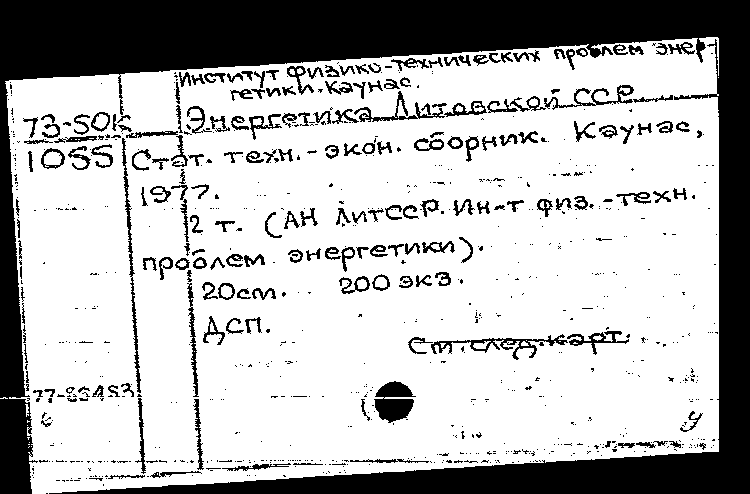 Институт физико-технических проблем энер-
гетики. Каунас.
73-50К Энергетика Литовской ССР
1055 Стат. техн.-экон. сборник. Каунас,
1977.
2 т. (АН ЛитССР. Ин-т физ.-техн.
проблем энергетики).
20см. 200 экз.
ДСП.
См. след. карт.
77-83483
б
у